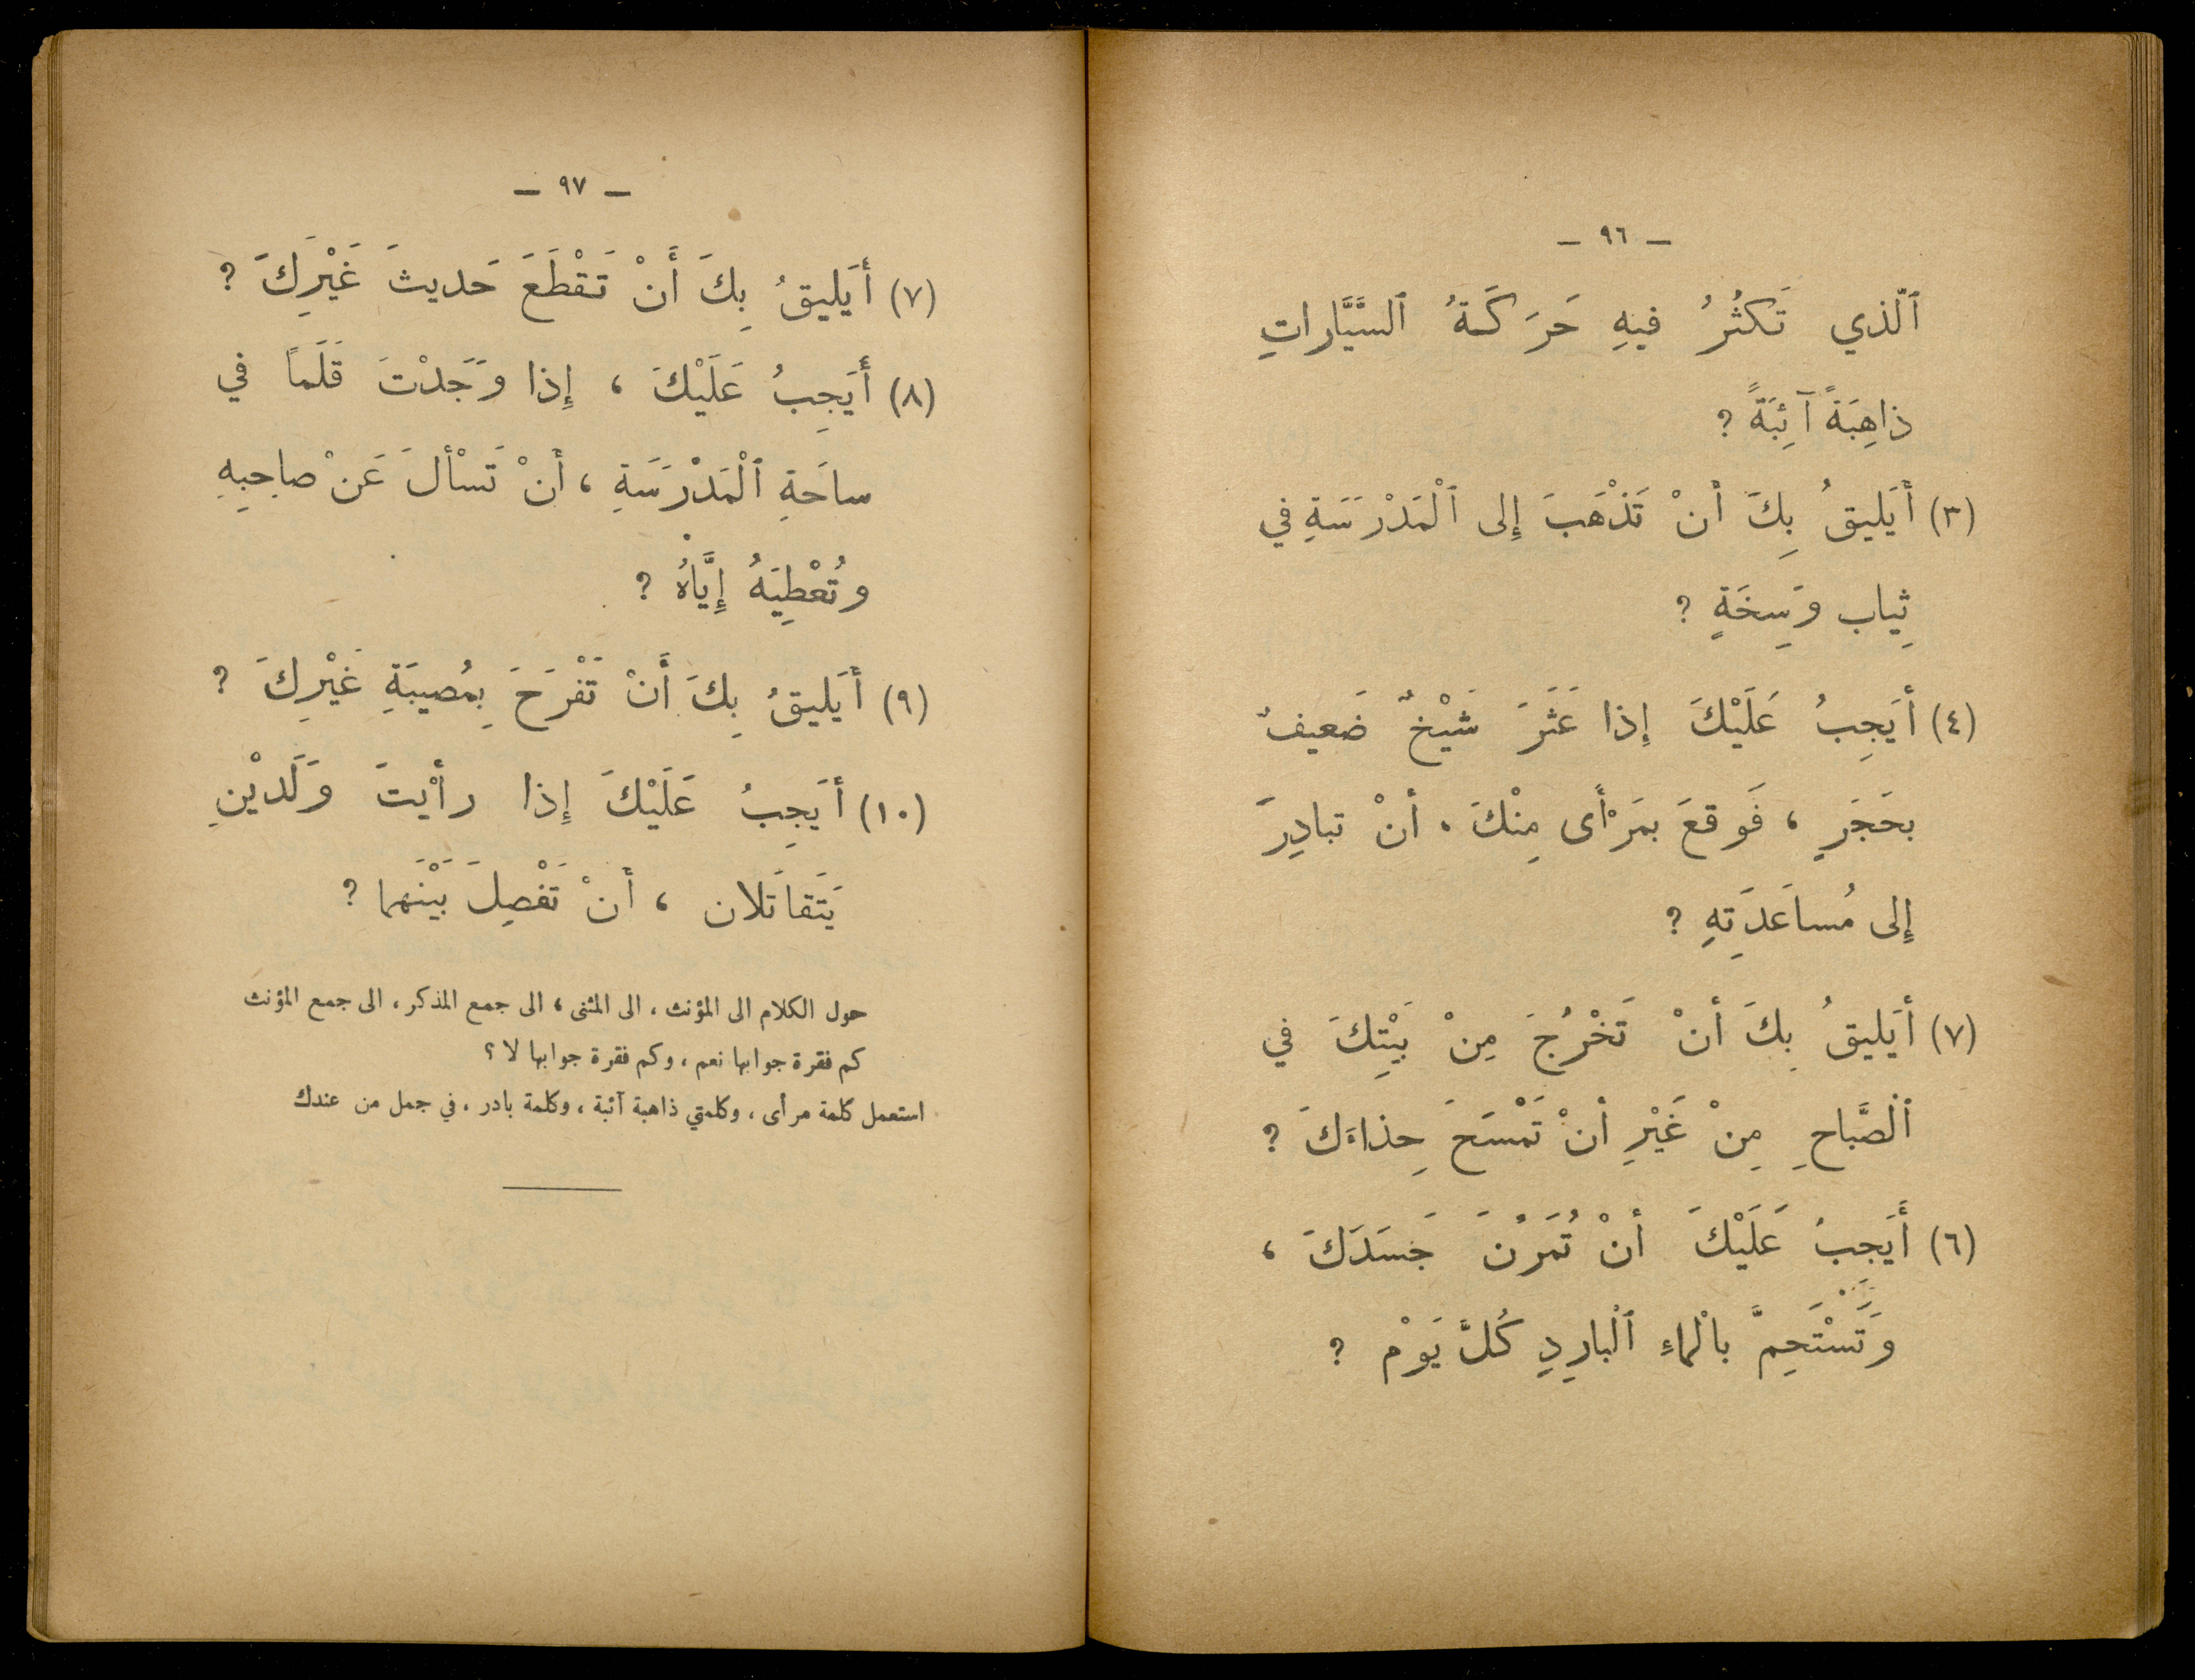 — ٩٦ —
ٱلّذي تَكثُرُ فيهِ حَرَكَةُ ٱلسَّيَّاراتِ
ذاهِبَةً آئِبَةً ؟
(٣) أيَليقُ بِكَ أنْ تَذْهَبَ إِلى ٱلْمَدْرَسَةِ في
ثِياب وَسِخَةٍ ؟
(٤) أيَجِبُ عَلَيْكَ إِذا عَثَرَ شَيْخٌ ضَعيفٌ
بحَجَرٍ ، فَوقعَ بمَرْأَى مِنْكَ ، أنْ تبادِرَ
إِلى مُساعَدَتِهِ ؟
(٧) أيَليقُ بِكَ أنْ تَخْرُجَ مِنْ بَيْتِكَ في
ٱلصَّباحِ مِنْ غَيْرِ أنْ تَمْسَحَ حِذاءَكَ ؟
(٦) أَيَجِبُ عَلَيْكَ أنْ تُمَرّنَ جَسَدَكَ ،
وَتَسْتَحِمَّ بالْماءِ ٱلْبارِدِ كُلَّ يَوْمٍ ؟
— ٩٧ —
(٧) أيَليقُ بِكَ أَنْ تَقْطَعَ حَديثَ غَيْرِكَ ؟
(٨) أَيَجِبُ عَلَيْكَ ، إِذا وَجَدْتَ قَلَماً في
ساحَةِ ٱلْمَدْرَسَةِ ، أنْ تَسْألَ عَنْ صاحِبِهِ
وتُعْطِيَهُ إِيَّاهُ ؟
(٩) أيَليقُ بِكَ أَنْ تَفْرَحَ بِمُصيبَةِ غَيْرِكَ ؟
(١٠) أيَجِبُ عَلَيْكَ إِذا رأيْتَ وَلَدَيْنِ
يَتَقاتَلان ، أنْ تَفْصِلَ بَيْنَهما ؟
حول الكلام الى المؤنث ، الى المثنى ، الى جمع المذكر ، الى جمع المؤنث
كم فقرة جوابها نعم ، وكم فقرة جوابها لا ؟
استعمل كلمة مرأى ، وكلمتي ذاهبة آئبة ، وكلمة بادر ، في جمل من عندك